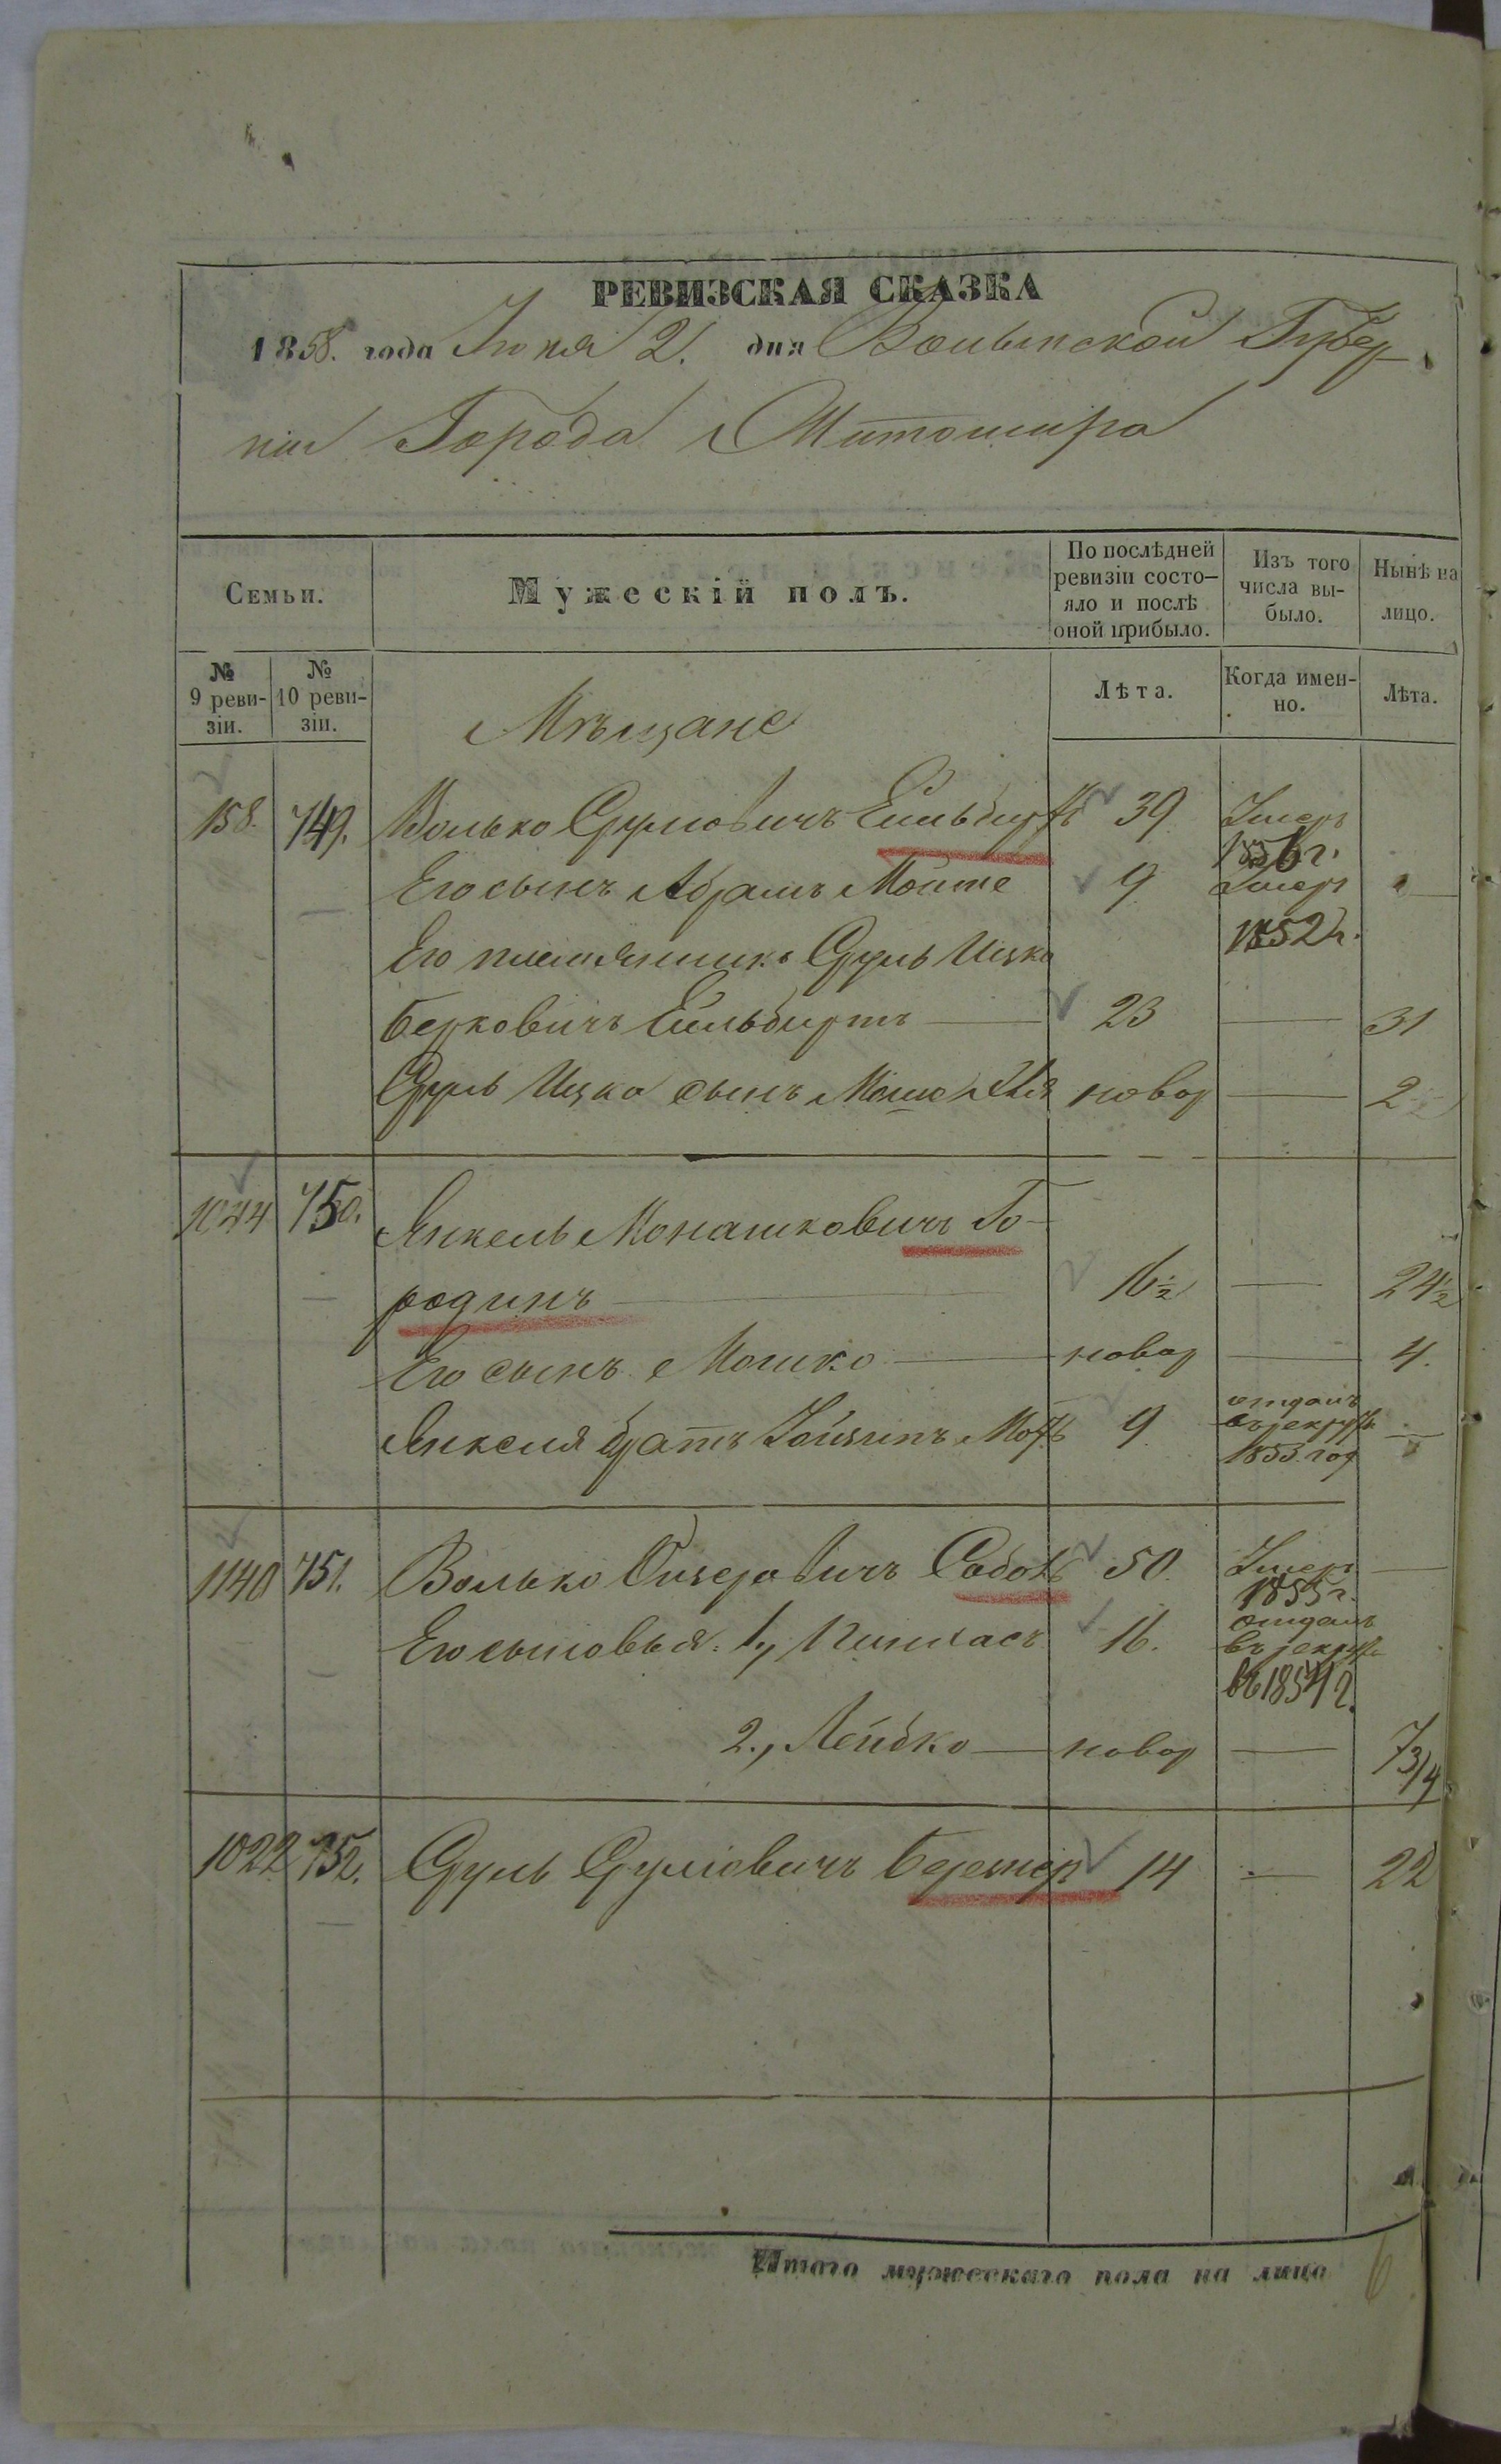 РЕВИЗСКАЯ СКАЗКА
1858. года Іюня 2. дня Волынской Губер-
ніи Города Житомира
Семьи.
Мужескій полъ.
По послѣдней ревизіи состо-
яло и послѣ оной прибыло.
Изъ того числа вы-
было.
Нынѣ на лицо.
№ 9 реви-
зіи.
№ 10 реви-
зіи.
Лѣта.
Когда имен-
но.
Лѣта.
Мѣщане
158. 749. Волько Сруліовичъ 39 Умеръ
1856 г.
Его сынъ Абрамъ 9 Умеръ —
1852 г.
Его племянникъ Сруль Ицко
Берковичъ Ейльбиртъ — 23 — 31
Сруль Ицка сынъ новор — 2
1044 750. Янкель Монашковичъ Го-
родинъ — 16½ — 24½
Его сынъ Мошко — новор — 4.
Янкеля братъ 9 отданъ
въ рекруты —
1853 год
1140 751. Волько 50. Умеръ —
1855 г.
Его сыновья: 1., Пинхасъ 16. отданъ
въ рекруты
въ 1854 г.
2., Лейбко — новор — 7¾
1022 752. Сруль Сруліовичъ 14 — 22
Итого мужескаго пола на лицо 6